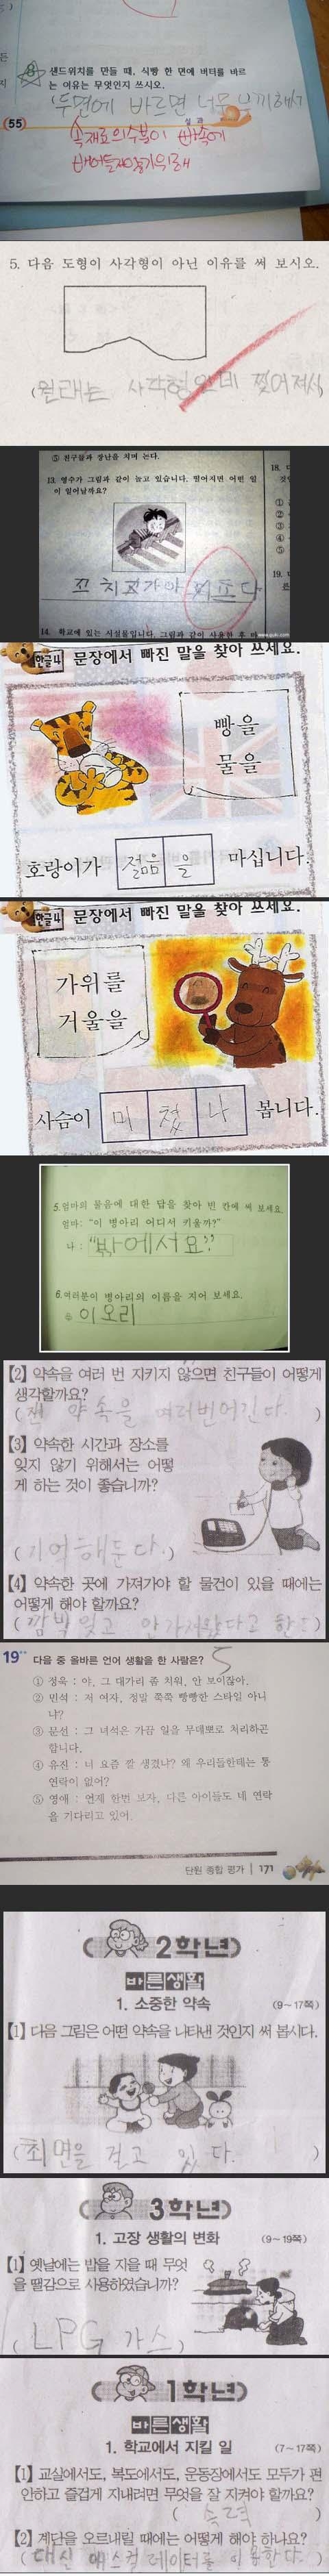 8 샌드위치를 만들 때, 식빵 한 면에 버터를 바르
는 이유는 무엇인지 쓰시오.
(두면에 바르면 너무 느끼해서
55
실과
속재료의수분이 빵속에
배어들지않기위해
5. 다음 도형이 사각형이 아닌 이유를 써 보시오.
(원래는 사각형인데 찢어져서)
⑤ 친구들과 장난을 치며 논다.
13. 영수가 그림과 같이 놀고 있습니다. 떨어지면 어떤 일
이 일어날까요?
18.
①
②
③
④
⑤
19.
14. 학교에 있는 시설물입니다. 그림과 같이 사용한 후
한글4 문장에서 빠진 말을 찾아 쓰세요.
빵을
물을
호랑이가 젊음을 마십니다.
한글4 문장에서 빠진 말을 찾아 쓰세요.
가위를
거울을
사슴이 미쳤나 봅니다.
5. 엄마의 물음에 대한 답을 찾아 빈 칸에 써 보세요.
엄마: "이 병아리 어디서 키울까?"
나 : "밖에서요?"
6. 여러분이 병아리의 이름을 지어 보세요.
이오리
【2】 약속을 여러 번 지키지 않으면 친구들이 어떻게
생각할까요?
(쟨 약속을 여러번어긴다.)
【3】 약속한 시간과 장소를
잊지 않기 위해서는 어떻
게 하는 것이 좋습니까?
(기억해둔다.)
【4】 약속한 곳에 가져가야 할 물건이 있을 때에는
어떻게 해야 할까요?
(깜빡잊고 안가져왔다고 한다)
19 다음 중 올바른 언어 생활을 한 사람은? 5
① 정욱 : 야, 그 대가리 좀 치워, 안 보이잖아.
② 민석 : 저 여자, 정말 쭉쭉 빵빵한 스타일 아니
냐?
③ 문선 : 그 녀석은 가끔 일을 무데뽀로 처리하곤
합니다.
④ 유진 : 너 요즘 깔 생겼냐? 왜 우리들한테는 통
연락이 없어?
⑤ 영애 : 언제 한번 보자, 다른 아이들도 네 연락
을 기다리고 있어.
단원 종합 평가 | 171
2학년
바른생활
1. 소중한 약속 (9~17쪽)
【1】 다음 그림은 어떤 약속을 나타낸 것인지 써 봅시다.
(최면을 걸고 있다.)
3학년
1. 고장 생활의 변화 (9~19쪽)
【1】 옛날에는 밥을 지을 때 무엇
을 땔감으로 사용하였습니까?
(LPG 가스)
1학년
바른생활
1. 학교에서 지킬 일 (7~17쪽)
【1】 교실에서도, 복도에서도, 운동장에서도 모두가 편
안하고 즐겁게 지내려면 무엇을 잘 지켜야 할까요?
(속력)
【2】 계단을 오르내릴 때에는 어떻게 해야 하나요?
(대신 에스컬레이터를 이용한다.)